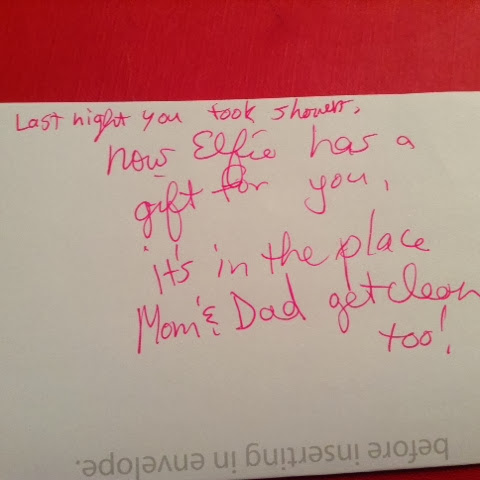 Last night you took showers,
now Elfie has a
gift for you,
it's in the place
Mom & Dad get clean
too!
before inserting in envelope.